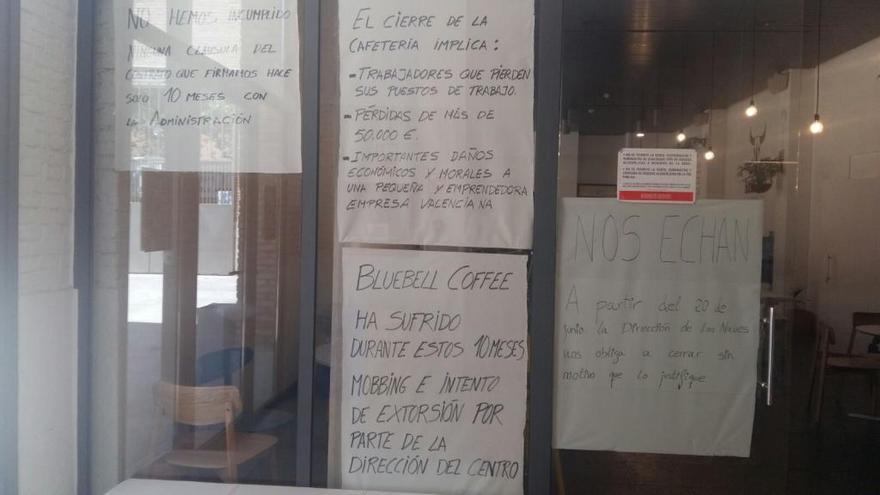 NO HEMOS INCUMPLIDO
NINGUNA CLAUSULA DEL
CONTRATO QUE FIRMAMOS HACE
SOLO 10 MESES CON
LA ADMINISTRACIÓN
EL CIERRE DE LA
CAFETERÍA IMPLICA:
- TRABAJADORES QUE PIERDEN
SUS PUESTOS DE TRABAJO.
- PÉRDIDAS DE MÁS DE
50.000 €.
- IMPORTANTES DAÑOS
ECONÓMICOS Y MORALES A
UNA PEQUEÑA Y EMPRENDEDORA
EMPRESA VALENCIANA
BLUEBELL COFFEE
HA SUFRIDO
DURANTE ESTOS 10 MESES
MOBBING E INTENTO
DE EXTORSIÓN POR
PARTE DE LA
DIRECCIÓN DEL CENTRO
NOS ECHAN
A partir del 20 de
junio la Dirección de Las Naves
nos obliga a cerrar sin
motivo que lo justifique